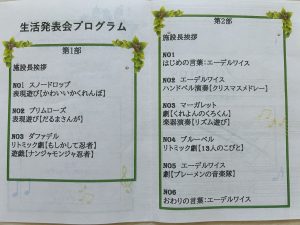 生活発表会プログラム
第1部
施設長挨拶
NO1 スノードロップ
表現遊び【かわいいかくれんぼ】
NO2 プリムローズ
表現遊び【だるまさんが】
NO3 ダファデル
リトミック劇【もしかして忍者】
遊戯【ナンジャモンジャ忍者】
第2部
施設長挨拶
NO1
はじめの言葉:エーデルワイス
NO2 エーデルワイス
ハンドベル演奏【クリスマスメドレー】
NO3 マーガレット
劇【くれよんのくろくん】
楽器演奏【リズム遊び】
NO4 ブルーベル
リトミック劇【13人のこびと】
NO5 エーデルワイス
劇【ブレーメンの音楽隊】
NO6
おわりの言葉:エーデルワイス